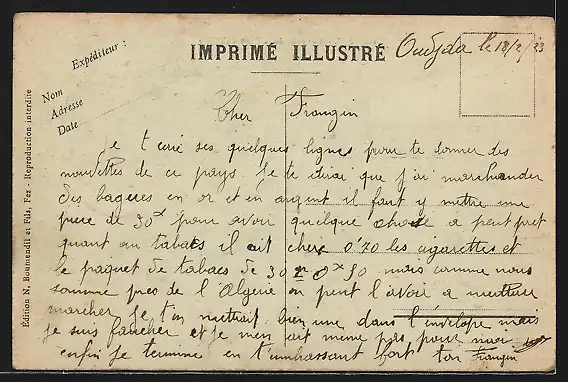 Expéditeur :
Nom
Adresse
Date
IMPRIMÉ ILLUSTRÉ
Oudjda le 18/2/33
Édition N. Boumendil et Fils, Fez Reproduction interdite
Cher Frangin
Je t ecrie ses quelques lignes pour te donner des
nouvelles de ce pays. Je te dirai que j'ai marchander
des bagues en or et en argent il faut y mettre une
piece de 30 pour avoir quelque chose a peut pret
quant au tabacs il ait chere 0'70 les cigarettes et
le paquet de tabacs de 30 0 50 mais comme nous
somme pres de l Algerie on peut l'avoir a meilleur
marcher Je t'en mettrait bien une dans l'envelope mais
je suis faucher et je men fait meme pas pour
enfin je termine en t'embrassant fort ton Frangin